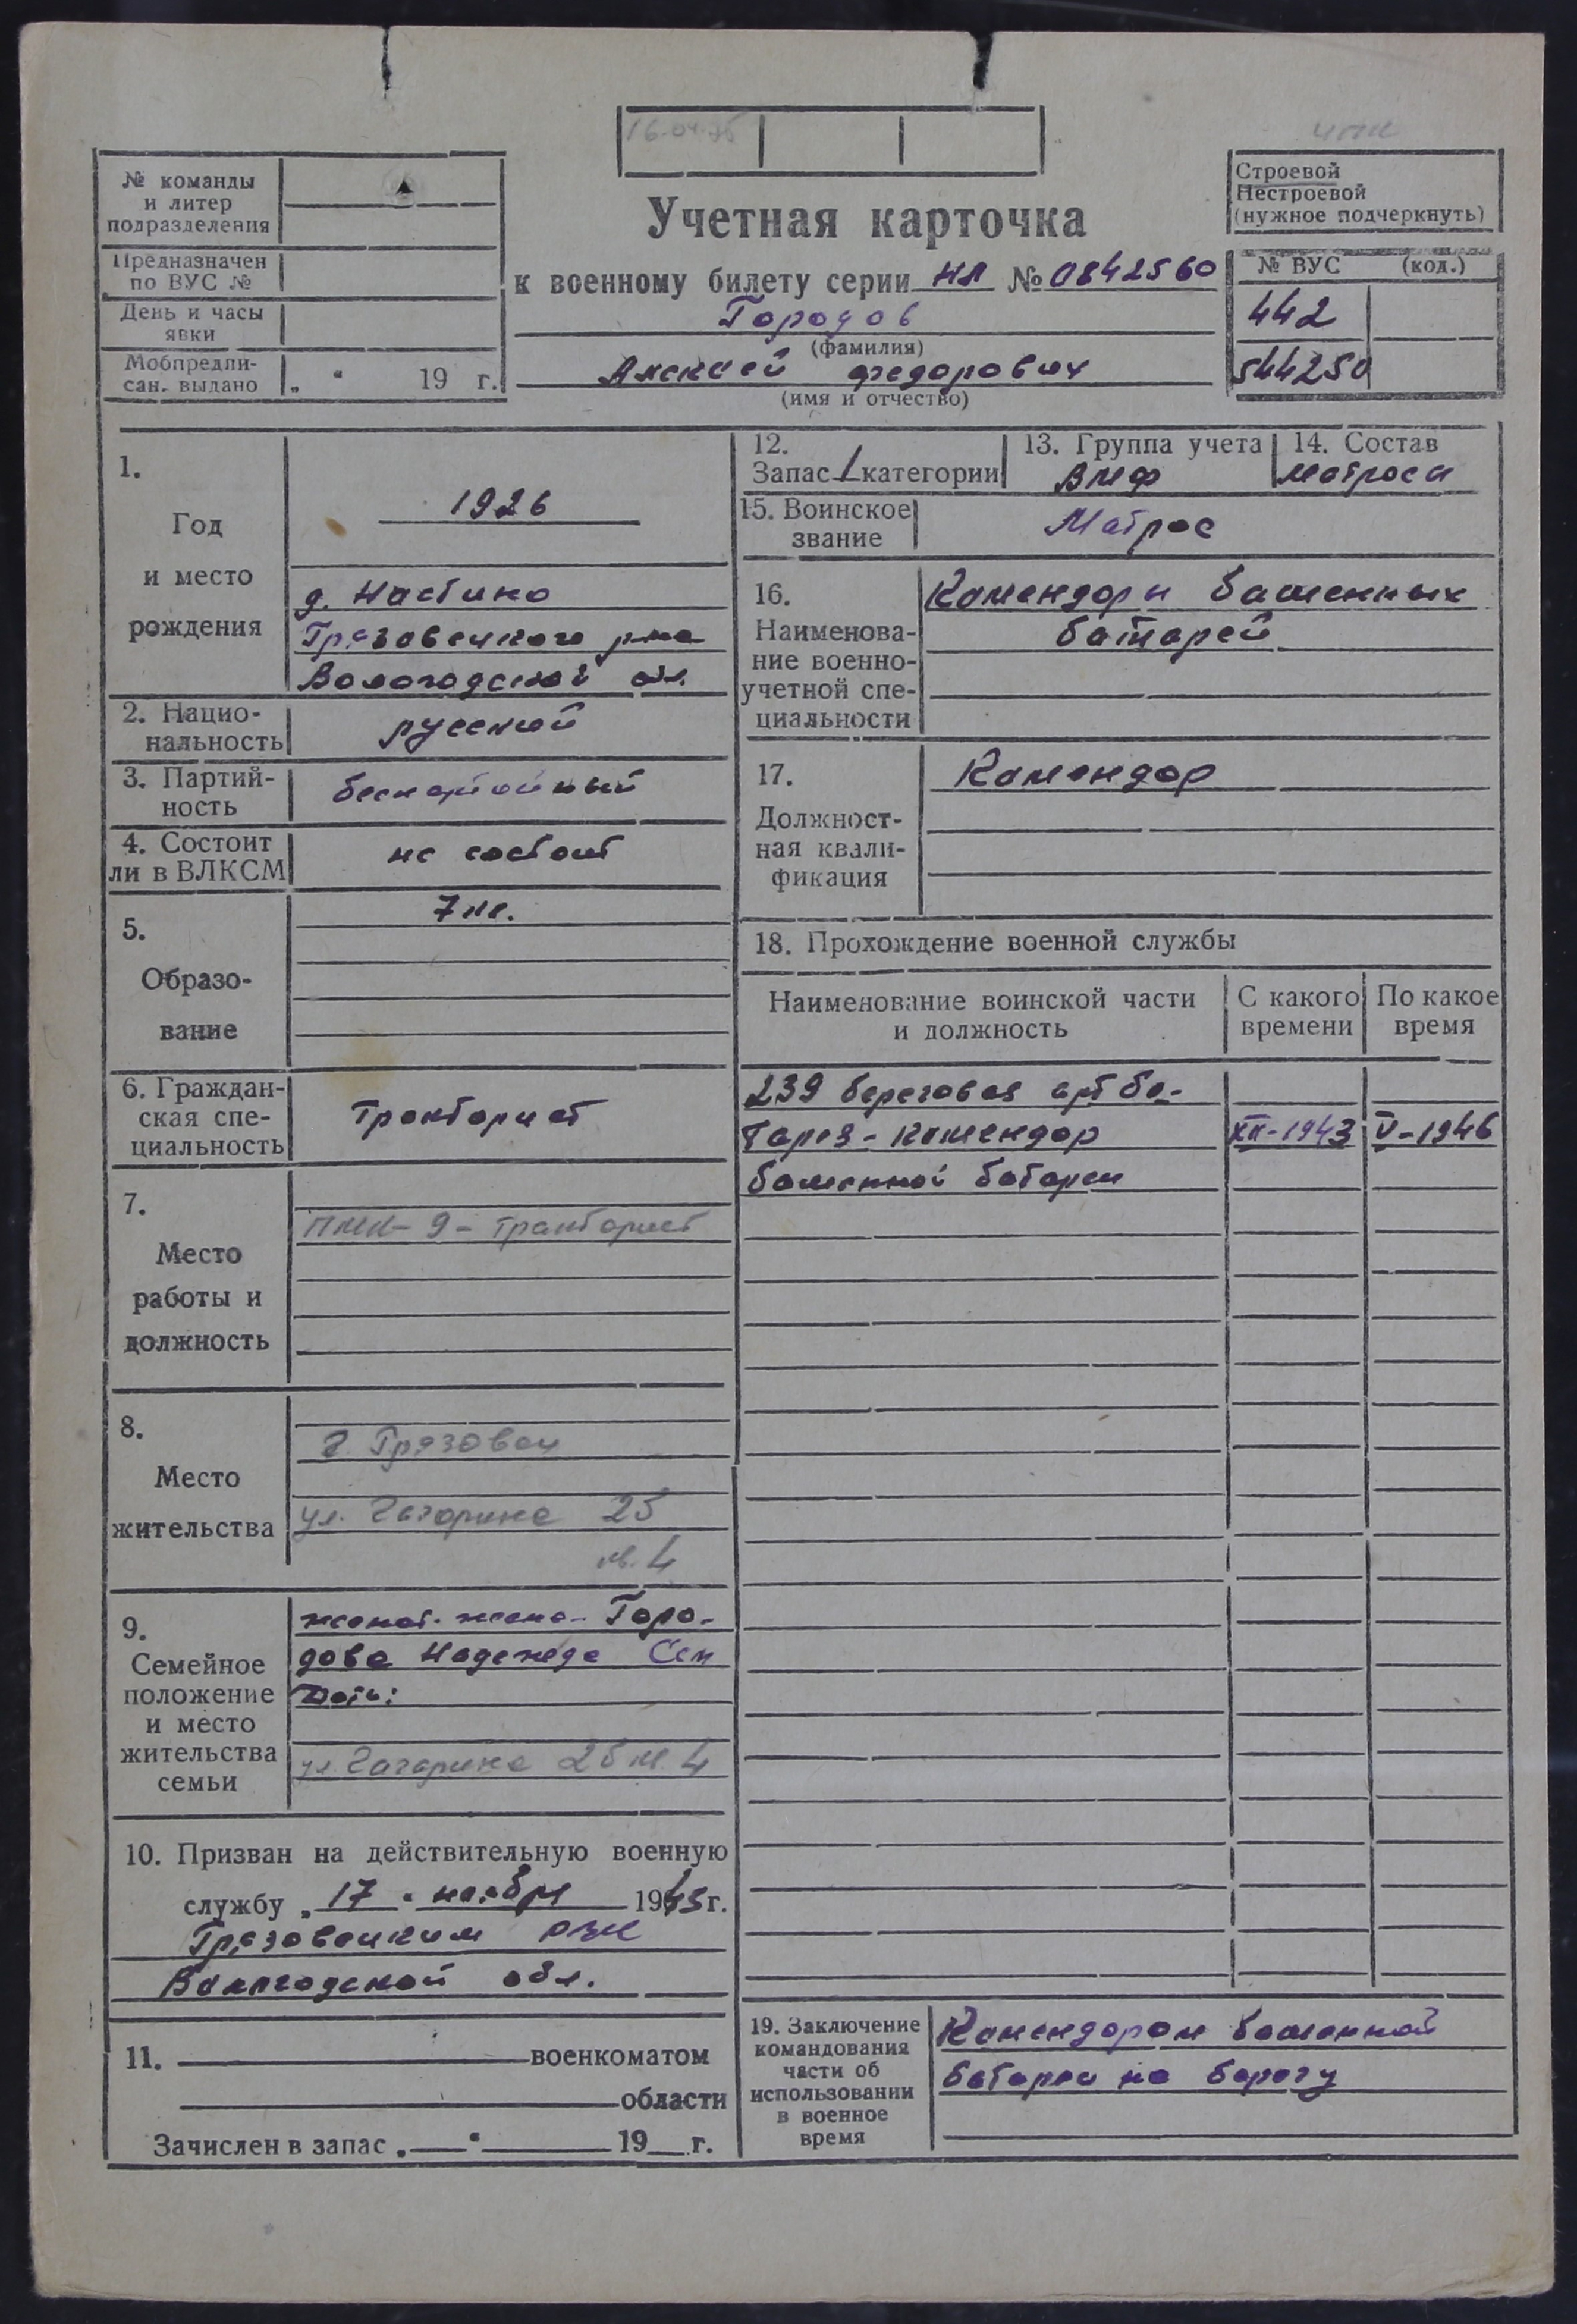 16-04-76
№ команды
и литер
подразделения
Предназначен
по ВУС №
День и часы
явки
Мобпредпи-
сан. выдано „ “ 19 г.
Учетная карточка
к военному билету серии НЛ № 0842560
Городов
(фамилия)
Алексей Федорович
(имя и отчество)
Строевой
Нестроевой
(нужное подчеркнуть)
№ ВУС (код.)
442
544250
1.
Год
и место
рождения
1926
д. Настино
Грязовецкого р-на
Вологодской обл.
2. Нацио-
нальность
русский
3. Партий-
ность
беспартийный
4. Состоит
ли в ВЛКСМ
не состоит
5.
Образо-
вание
7 кл.
6. Граждан-
ская спе-
циальность
Тракторист
7.
Место
работы и
должность
ПМК-9-тракторист
8.
Место
жительства
г. Грязовец
ул. Гагарина 25
кв. 4
9.
Семейное
положение
и место
жительства
семьи
женат. жена- Горо-
дова Надежда Сем
Дети:
ул. Гагарина 25 кв. 4
10. Призван на действительную военную
службу „ 17 “ ноября 1943 г.
Грязовецким РВК
Вологодской обл.
11. военкоматом
области
Зачислен в запас „ “ 19 г.
12.
Запас 1 категории
13. Группа учета
ВМФ
14. Состав
матросы
15. Воинское
звание
Матрос
16.
Наименова-
ние военно-
учетной спе-
циальности
Комендоры башенных
батарей
17.
Должност-
ная квали-
фикация
Комендор
18. Прохождение военной службы
Наименование воинской части
и должность
С какого
времени
По какое
время
239 береговая арт ба-
тарея - комендор XII-1943 V-1946
башенной батареи
19. Заключение
командования
части об
использовании
в военное
время
Комендором башенной
батареи на берегу